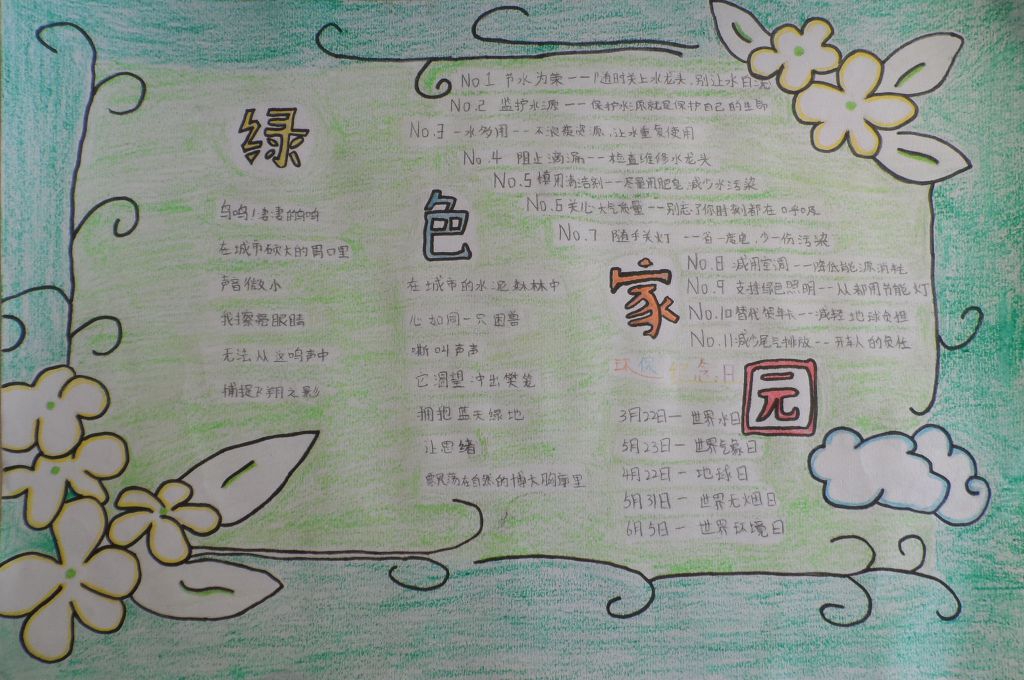 绿
色
家
园
No.1 节水为荣——随时关上水龙头,别让水白流
No.2 监护水源——保护水源就是保护自己的生命
No.3 一水多用——不浪费资源,让水重复使用
No.4 阻止滴漏——检查维修水龙头
No.5 慎用清洁剂——尽量用肥皂,减少水污染
No.6 关心大气质量——别忘了你时刻都在呼吸
No.7 随手关灯——省一度电,少一份污染
No.8 减用空调——降低能源消耗
No.9 支持绿色照明——从都用节能灯
No.10 替代贺年卡——减轻地球负担
No.11 减少尾气排放——开车人的责任
呜呜!凄凄的呜呜
在城市硕大的胃口里
声音微小
我擦亮眼睛
无法从这鸣声中
捕捉飞翔之影
在城市的水泥丛林中
心如同一只困兽
嘶叫声声
它渴望冲出樊笼
拥抱蓝天绿地
让思绪
飘荡在自然的博大胸怀里
环保纪念日
3月22日—世界水日
5月23日—世界气象日
4月22日—地球日
5月31日—世界无烟日
6月5日—世界环境日